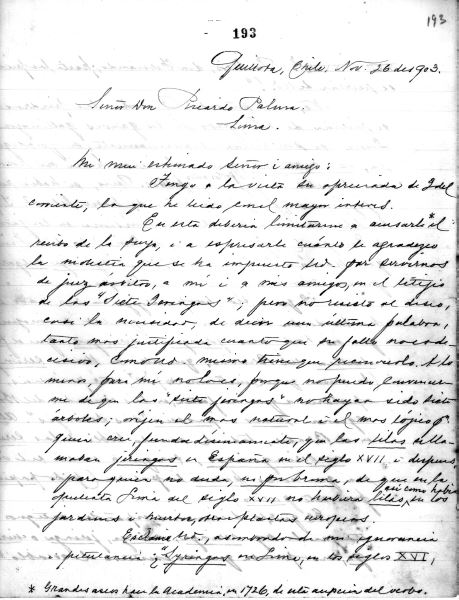 193
193
Quillota, Chile, Nov. 26 de 1903.
Señor Don Ricardo Palma.
Lima.
Mi mui estimado Señor i amigo:
Tengo a la vista su apreciada de 2 del
corriente, la que he leido con el mayor interes.
En esta deberia limitarme a acusarle* el
recibo de la suya, i a espresarle cuánto le agradezco
la molestia que se ha impuesto Ud. por servirnos
de juez árbitro, a mi i a mis amigos, en el litijio
de las "Siete Jeringas"; pero no resisto al deseo,
casi la necesidad, de decir una última palabra,
tanto mas justificada cuanto que su fallo no es de-
cisivo, como Ud. mismo tiene que reconocerlo. A lo
menos, para mí no lo es, porque no puedo convencer-
me de que las "siete jeringas" no hayan sido siete
árboles; oríjen el mas natural i el mas lójico p.ª
quien cree, fundadamente, que las lilas se lla-
maban jeringas en España en el siglo XVII i despues,
i para quien no duda, ni por broma, de que en la
opulenta Lima del siglo XVII no hubiera lilas, así como habia
en los
jardines i huertos, otras plantas europeas.
Esclama Ud., asombrado de mi ignorancia
i petulancia: "¿Syringas en Lima, en los siglos XVI,
* Grandes ascos hace la Academia, en 1726, de esta acepcion del verbo.